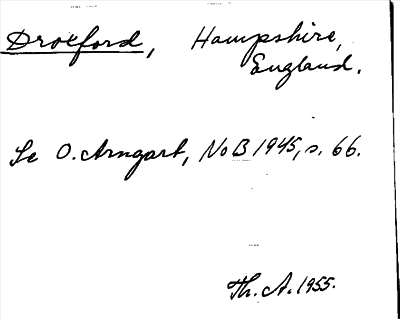 Droxford, Hampshire,
England.
Se O. Arngart, NoB 1945, s. 66.
Th. A. 1955.